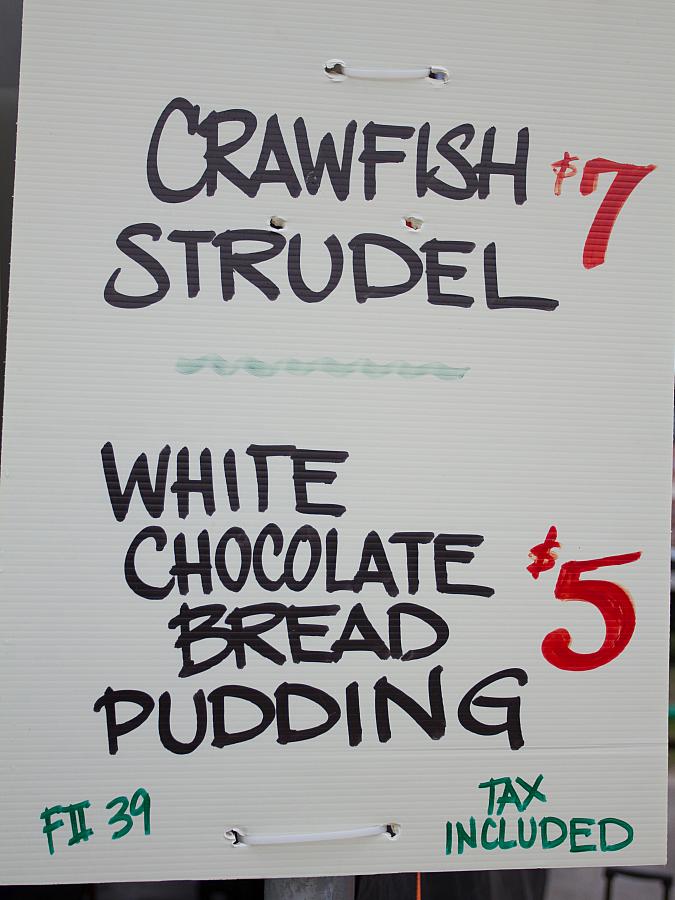 CRAWFISH $7
STRUDEL
WHITE
CHOCOLATE $5
BREAD
PUDDING
FII 39
TAX
INCLUDED